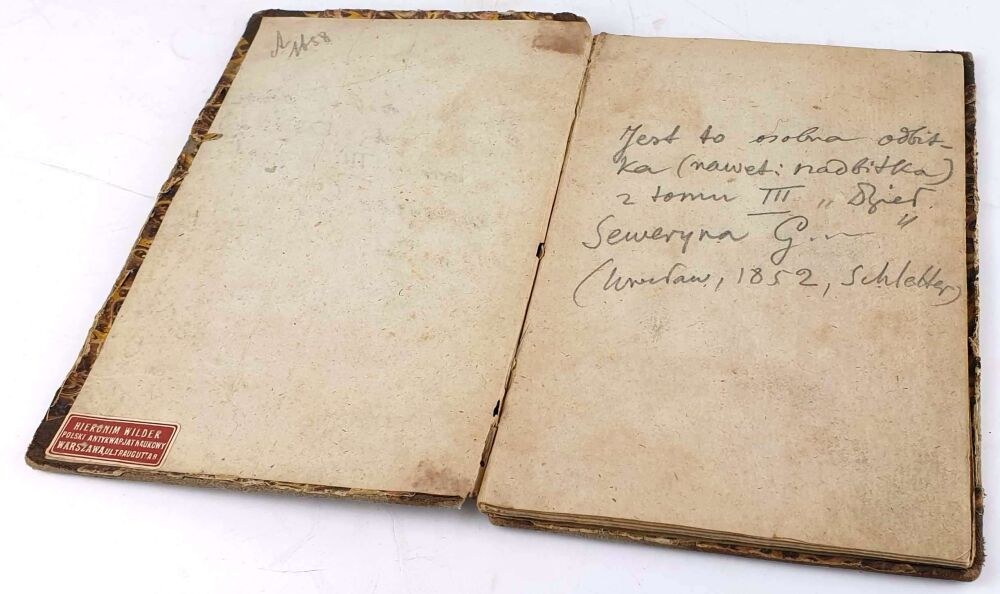 A 1658
HIERONIM WILDER
POLSKI ANTYKWARJAT NAUKOWY
WARSZAWA, UL. TRAUGUTTA 8
Jest to osobna odbit-
ka (nawet: nadbitka)
z tomu III „Dzieł
Seweryna G..."
(Wrocław, 1852, Schletter)